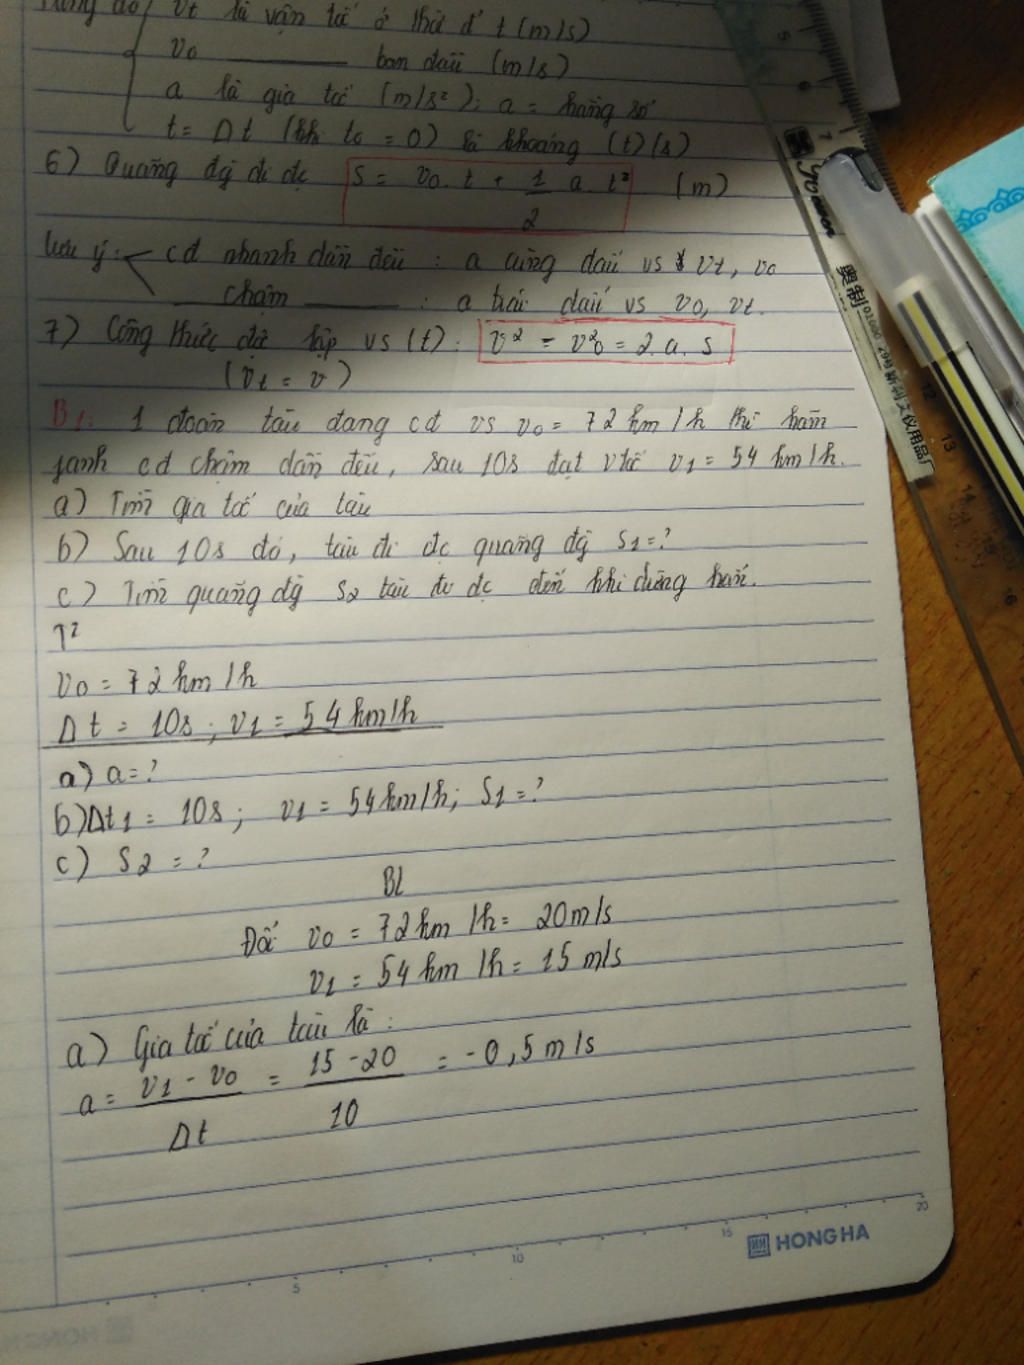 vt là vận tốc ở thời đ' t (m/s)
v0 ban đầu (m/s)
a là gia tốc (m/s²); a = hằng số
t = Δt (khi t0 = 0) là khoảng (t)(s)
6) Quãng đg đi đc S = v0.t + 1/2 a.t² (m)
lưu ý: cđ nhanh dần đều : a cùng dấu vs vt, v0
chậm : a trái dấu vs v0, vt.
7) Công thức độc lập vs (t): v² - v0² = 2.a.s
(vt = v)
B1: 1 đoàn tàu đang cđ vs v0 = 72 km/h thì hãm
fanh cđ chậm dần đều, sau 10s đạt vtốc v1 = 54 km/h.
a) Tìm gia tốc của tàu
b) Sau 10s đó, tàu đi đc quãng đg S1 = ?
c) Tìm quãng đg S2 tàu đi đc đến khi dừng hẳn.
T²
v0 = 72 km/h
Δt = 10s ; v1 = 54 km/h
a) a = ?
b) Δt1 = 10s ; v1 = 54 km/h; S1 = ?
c) S2 = ?
BL
Đổi v0 = 72 km/h = 20 m/s
v1 = 54 km/h = 15 m/s
a) Gia tốc của tàu là :
a = (v1 - v0)/Δt = (15 - 20)/10 = -0,5 m/s
HONG HA
5 10 15 20